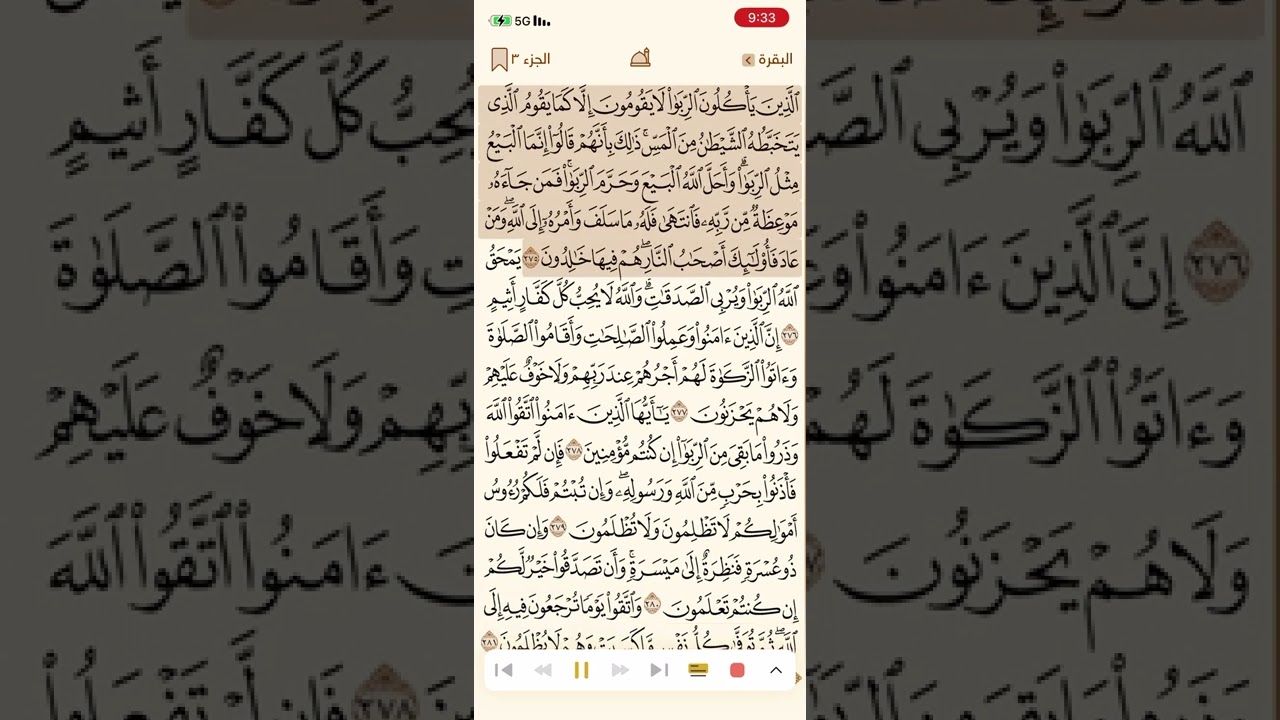 5G 9:33
البقرة الجزء ٣
ٱلَّذِينَ يَأۡكُلُونَ ٱلرِّبَوٰاْ لَا يَقُومُونَ إِلَّا كَمَا يَقُومُ ٱلَّذِي
يَتَخَبَّطُهُ ٱلشَّيۡطَٰنُ مِنَ ٱلۡمَسِّۚ ذَٰلِكَ بِأَنَّهُمۡ قَالُوٓاْ إِنَّمَا ٱلۡبَيۡعُ
مِثۡلُ ٱلرِّبَوٰاْۗ وَأَحَلَّ ٱللَّهُ ٱلۡبَيۡعَ وَحَرَّمَ ٱلرِّبَوٰاْۚ فَمَن جَآءَهُۥ
مَوۡعِظَةٞ مِّن رَّبِّهِۦ فَٱنتَهَىٰ فَلَهُۥ مَا سَلَفَ وَأَمۡرُهُۥٓ إِلَى ٱللَّهِۖ وَمَنۡ
عَادَ فَأُوْلَٰٓئِكَ أَصۡحَٰبُ ٱلنَّارِۖ هُمۡ فِيهَا خَٰلِدُونَ ٢٧٥ يَمۡحَقُ
ٱللَّهُ ٱلرِّبَوٰاْ وَيُرۡبِي ٱلصَّدَقَٰتِۗ وَٱللَّهُ لَا يُحِبُّ كُلَّ كَفَّارٍ أَثِيمٍ
٢٧٦ إِنَّ ٱلَّذِينَ ءَامَنُواْ وَعَمِلُواْ ٱلصَّٰلِحَٰتِ وَأَقَامُواْ ٱلصَّلَوٰةَ
وَءَاتَوُاْ ٱلزَّكَوٰةَ لَهُمۡ أَجۡرُهُمۡ عِندَ رَبِّهِمۡ وَلَا خَوۡفٌ عَلَيۡهِمۡ
وَلَا هُمۡ يَحۡزَنُونَ ٢٧٧ يَٰٓأَيُّهَا ٱلَّذِينَ ءَامَنُواْ ٱتَّقُواْ ٱللَّهَ
وَذَرُواْ مَا بَقِيَ مِنَ ٱلرِّبَوٰٓاْ إِن كُنتُم مُّؤۡمِنِينَ ٢٧٨ فَإِن لَّمۡ تَفۡعَلُواْ
فَأۡذَنُواْ بِحَرۡبٖ مِّنَ ٱللَّهِ وَرَسُولِهِۦۖ وَإِن تُبۡتُمۡ فَلَكُمۡ رُءُوسُ
أَمۡوَٰلِكُمۡ لَا تَظۡلِمُونَ وَلَا تُظۡلَمُونَ ٢٧٩ وَإِن كَانَ
ذُو عُسۡرَةٖ فَنَظِرَةٌ إِلَىٰ مَيۡسَرَةٖۚ وَأَن تَصَدَّقُواْ خَيۡرٞ لَّكُمۡ
إِن كُنتُمۡ تَعۡلَمُونَ ٢٨٠ وَٱتَّقُواْ يَوۡمٗا تُرۡجَعُونَ فِيهِ إِلَى
ٱللَّهِۖ ثُمَّ تُوَفَّىٰ كُلُّ نَفۡسٖ مَّا كَسَبَتۡ وَهُمۡ لَا يُظۡلَمُونَ ٢٨١